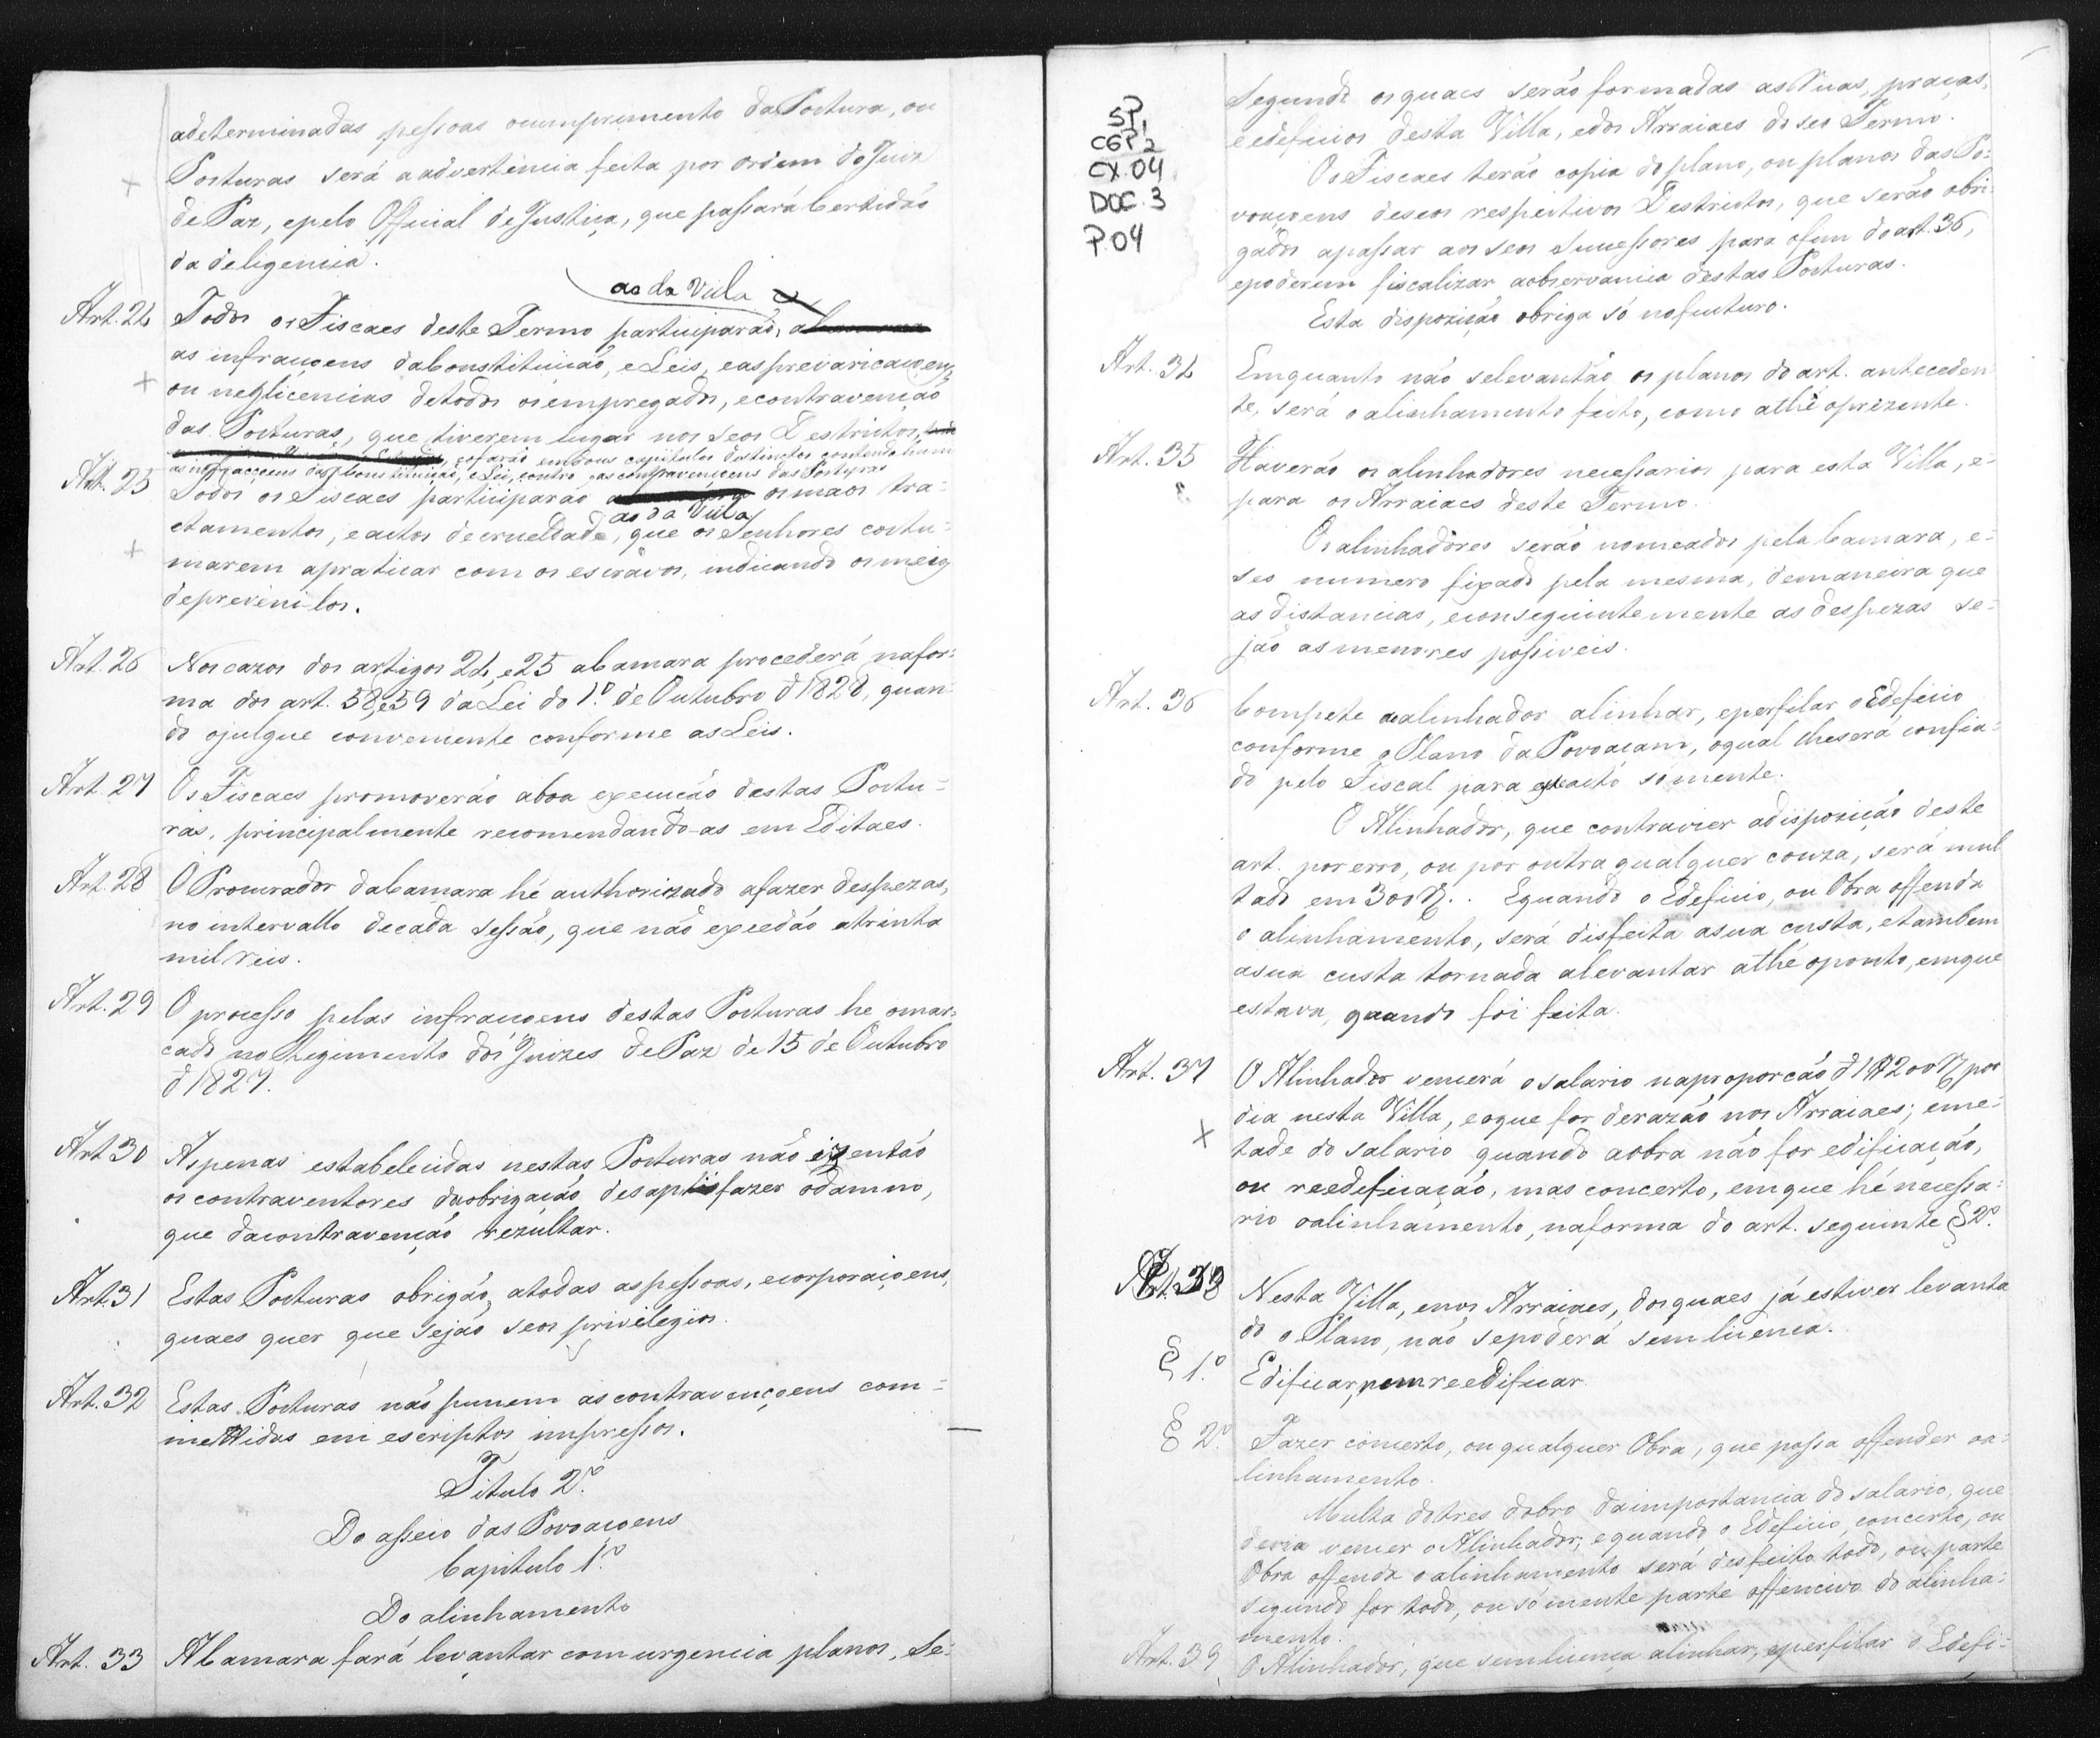 adeterminadas pessoas ocumprimento da Postura, ou
Posturas será aadvertencia feita por ordem do Juiz
de Paz, epelo Official de Justiça, que passará Certidão
da deligencia.
ao da Villa
Art. 24 Todos os Fiscaes deste Termo participarão,
as infraçoens da Constituição, e Leis, eas prevaricaçoens,
ou neglicencias detodos os empregados, econtravenção
das Posturas, que tiverem lugar nos seos Destrictos,
cofarão em dous capitulos distinctos contendo hum
as infracçoens da Constituição, e Lei, e outro, as contravençoens das Posturas
Art. 25 Todos os Fiscaes participarão os maos tra=
ao da Villa
ctamentos, eactos decrueldade, que os Senhores costu=
marem apraticar com os escravos, indicando os meios
deprevenilos.
Art. 26 Nos cazos dos artigos 24, e 25 a Camara procederá nafor=
ma dos art. 58, e 59 da Lei do 1.º de Outubro d 1828, quan
do ojulgue conveniente conforme as Leis.
Art. 27 Os Fiscaes promoverão aboa execução destas Postu=
ras, principalmente recomendando-as em Editaes.
Art. 28 O Procurador da Camara hé authorizado afazer despezas,
no intervallo decada sessão, que não excedão atrinta
mil reis.
Art. 29 O processo pelas infraçoens destas Posturas he omar=
cado no Regimento dos Juizes de Paz de 15 de Outubro
d 1827.
Art 30 As penas estabelecidas nestas Posturas não izentão
os contraventores da obrigação desaptisfazer odamno,
que dacontravenção rezultar.
Art. 31 Estas Posturas obrigão, atodas aspessoas, ecorporaçoens,
quaes quer que sejão seos privilegios.
Art. 32 Estas Posturas não punem as contravençoens com=
mettidas em escriptos impressos.
Titulo 2.º
Do asseio das Povoaçoens
Capitulo 1.º
Do alinhamento
Art. 33 A Camara fará levantar com urgencia planos, Se=
SP1
CGP2
CX.04
DOC.3
P.04
Segundo os quaes serão formadas as Ruas, praças,
e edeficios desta Villa, edos Arraiaes do seo Termo.
Os Fiscaes terão copia do plano, ou planos das Po=
voaçoens deseos respectivos Destrictos, que serão obri
gados apassar aos seos Sucessores para ofim do art. 36,
epoderem fiscalizar aobservancia destas Posturas.
Esta dispozição obriga só nofucturo.
Art. 34 Emquanto não selevantão os planos do art. anteceden
te, será o alinhamento feito, como athé oprezente.
Art. 35 Haverão os alinhadores necessarios para esta Villa, e=
para os Arraiaes deste Termo.
Os alinhadores serão nomeados pela Camara, e=
seo numero fixado pela mesma, demaneira que
as distancias, econseguintemente as despezas se=
jão as menores possiveis.
Art. 36 Compete aoalinhador alinhar, eperfilar o Edeficio
conforme o Plano da Povoaçam, oqual lheserá confia=
do pelo Fiscal para esteacto sómente.
O Alinhador, que contravier adispozição deste
art. por erro, ou por outra qualquer couza, será mul
tado em 300 R. Equando o Edeficio, ou Obra offenda
o alinhamento, será disfeita asua custa, etambem
asua custa tornada alevantar athé oponto, emque
estava, quando foi feita.
Art. 37 O Alinhador vencerá osalario naproporcão d 1$200 R por
dia nesta Villa, eoque for derazão nos Arraiaes; eme=
tade do salario quando aobra não for edificação,
ou reedificação, mas concerto, emque hé necessa=
rio oalinhamento, naforma do art. seguinte § 2.º
Art. 38 Nesta Villa, enos Arraiaes, dosquaes já estiver levanta
do o Plano, não sepoderá sem licença.
§ 1.º Edificar, nem reedificar.
§ 2.º Fazer concerto, ou qualquer Obra, que possa offender oa=
linhamento.
Multa dotres dobro daimportancia do salario, que
devia vencer o Alinhador; equando o Edeficio, concerto, ou
Obra offenda oalinhamento será desfeito todo, ou parte
segundo for todo, ou sómente parte offencivo do alinha=
mento.
Art. 39 O Alinhador, que sem licença alinhar, eperfilar o Edefi=